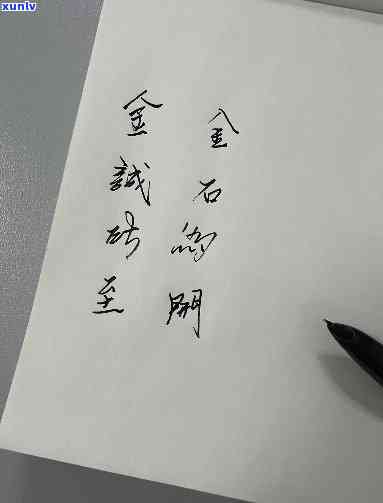 xuniv
金誠所至
金石為開